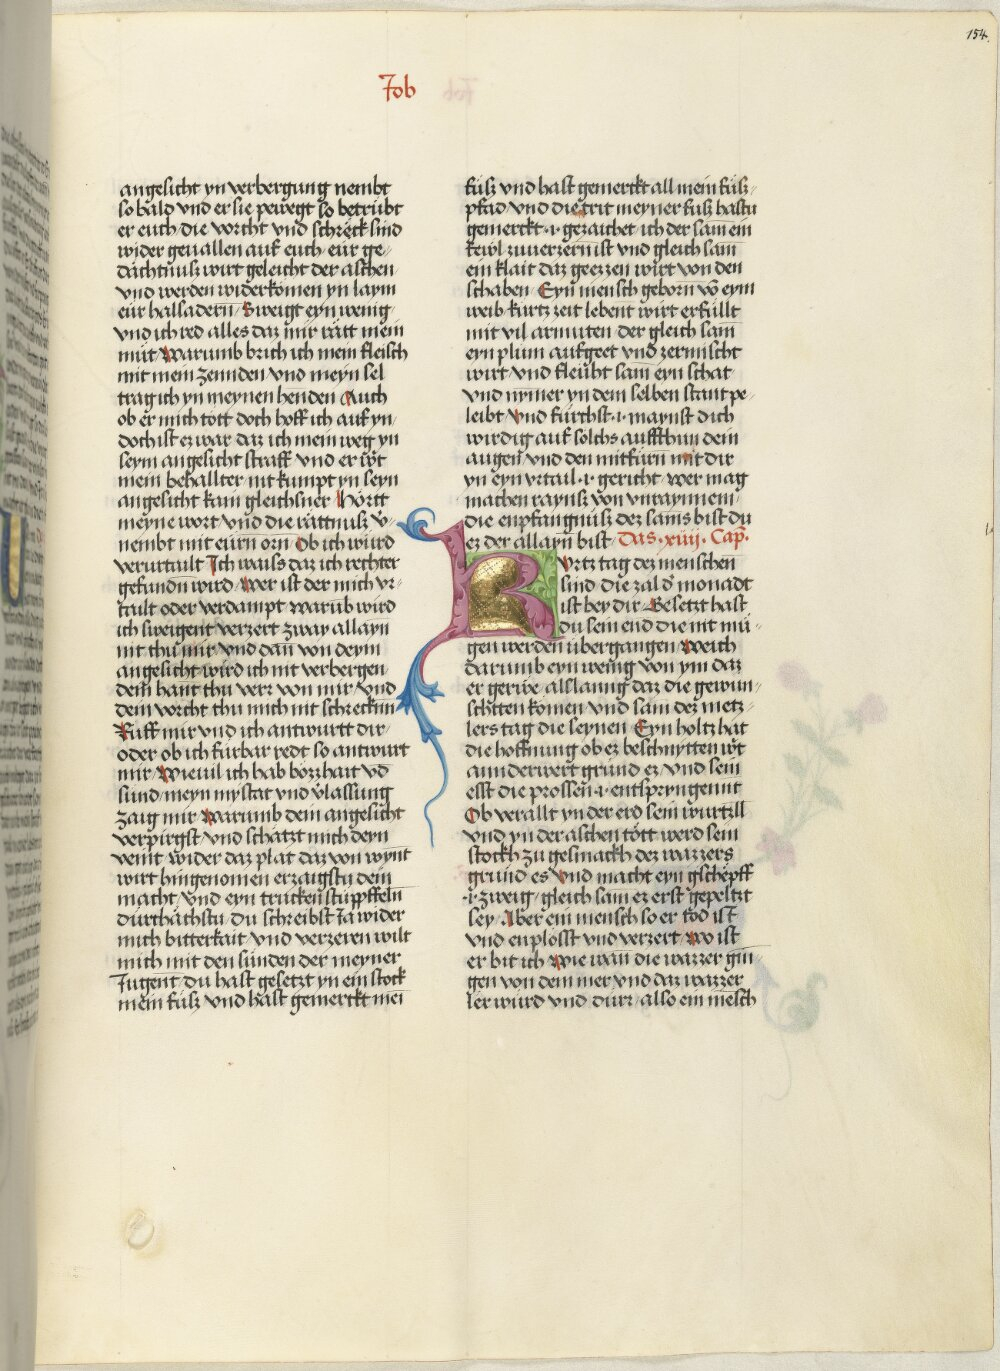 154.
Job
angesicht yn verbergung nembt
so bald vnd er sie pewegt so betrubt
er euch die vorcht vnd schreck sind
wider geuallen auf euch eur ge-
dachtnusz wirt geleicht der aschen
vnd werden widerkomen yn laym
eur halsadern Sweigt eyn wenig
vnd ich red alles daz mir ratt mein
mut Warumb brich ich mein fleisch
mit mein zennden vnd meyn sel
trag ich yn meynen henden Auch
ob er mich tott doch hoff ich auf yn
doch ist ez war daz ich mein weg yn
seym angesicht straff vnd er wt
mein behallter nit kumpt yn seyn
angesicht kain gleichsner Hortt
meyne wort vnd die rattnusz v-
nembt mit eurn orn Ob ich wurd
verurtailt Ich waisz daz ich rechter
gefundn wird Wer ist der mich vr-
tailt oder verdampt warub wird
ich sweigent verzert zway allayn
nit thu mir vnd dan von deym
angesicht wird ich nit verbergen
dein hant thu verr von mir vnd
dein vorcht thu mich nit schreckin
Ruff mir vnd ich antwurtt dir
oder ob ich furbar redt so antwurt
mir Wieuil ich hab bozzhait vd
sund meyn mystat vnd vlassung
zaig mir Warumb dein angesicht
verpirgst vnd schatzt mich deyn
veint wider daz plat daz von wynt
wirt hingenomen erzaigstu dein
macht vnd eyn trucken stuppffeln
durchachstu du schreibst Ja wider
mich bitterkait vnd verzeren wilt
mich mit den sunden der meyner
Jugent du hast gesetzt yn ein stock
mein fusz vnd hast gemerckt mei
fusz vnd hast gemerckt all mein fusz-
pfad vnd die trit meyner fusz hastu
gemerckt .i. gezaichet ich der sam ein
kewl zuuerzern ist vnd gleich sam
ein klait daz geezzen wirt von den
schaben Eyn mensch geborn vo eym
weib kurtz zeit lebent wirt erfullt
mit vil armuten der gleich sam
eyn plum aufgeet vnd zermischt
wirt vnd fleubt sam eyn schat
vnd nymer yn dem selben stant pe-
leibt Vnd furchst .i. maynst dich
wirdig auf solchs auffthun dein
augen vnd den mitfurn mit dir
yn eyn vrtail .i. gericht wer mag
machen raynsz von vnraynem
die enpfangnusz dez sams bist du
ez der allayn bist Das .xiiij. Cap.
Kurtz tag dez menschen
sind die zal d monadt
ist bey dir Gesetzt hast
du sein end die nit mu-
gen werden ubergangen Weich
darumb eyn wenig von ym daz
er gerwe alslanng daz die gewun-
schtten komen vnd sam dez metz-
lers tag die seynen Eyn holtz hat
die hoffnung ob ez beschnytten wt
annderwert grund ez vnd sein
esst die prossen .i. entspryngen nit
Ob verallt yn der erd sein wurtzll
vnd yn der aschen tott werd sein
stockh zu gesmackh dez wazzers
grund es Vnd macht eyn gschepff
.i. zweig gleich sam ez erst gepeltzt
sey Aber ein mensch so er tod ist
vnd enplosst vnd verzert Wo ist
er bit ich Wie wan die wazzer gin-
gen von dem mer vnd daz wazzer
ler wurd vnd durr also ein mesch